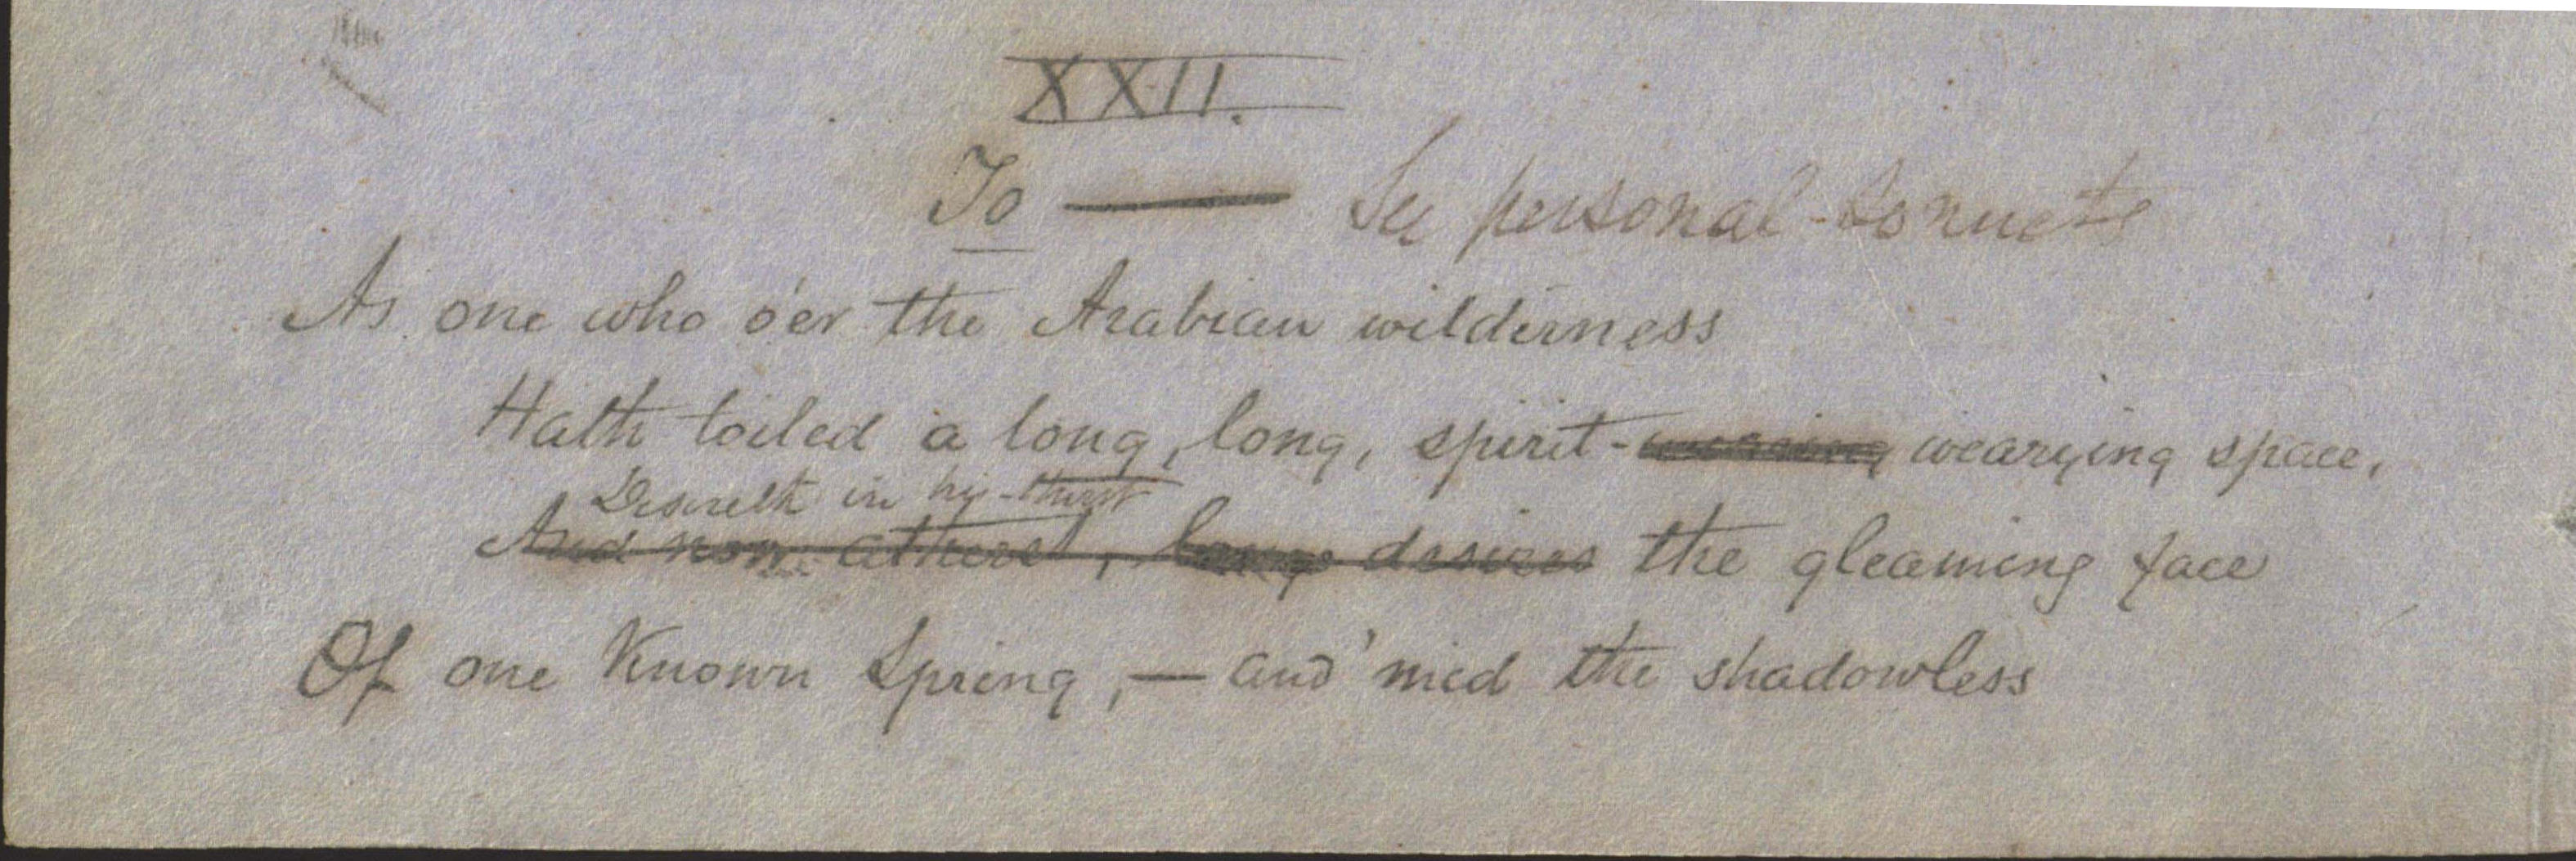 XXII.
To — See personal sonnets
As one who o'er the Arabian wilderness
Hath toiled a long, long, spirit- wearying space,
Desireth in his thirst
And now athirst, desires the gleaming face
Of one Known Spring, — and 'mid the shadowless